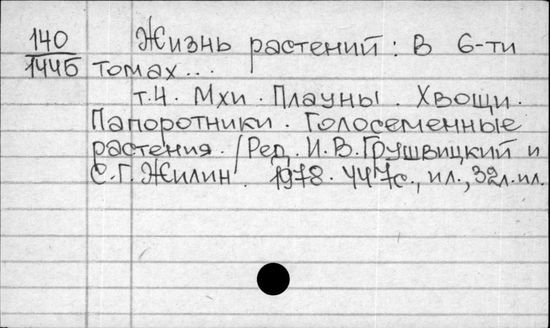 140 Жизнь растений: В 6-ти
1445 томах...
т.4. Мхи. Плауны. Хвощи.
Папоротники. Голосеменные
растения. / Ред. И. В. Грушвицкий и
С. Г. Жилин. 1978. 447с., ил., 32л.ил.